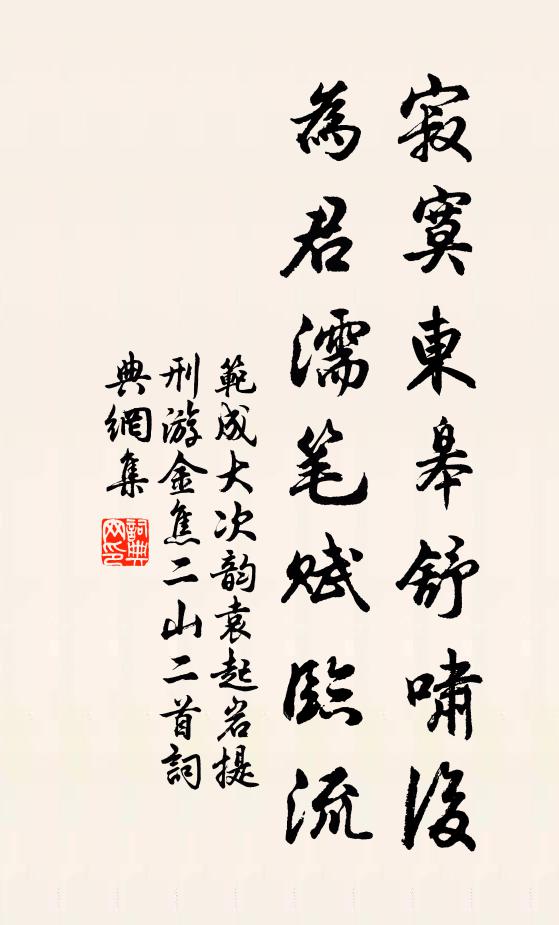 寂寞東皋舒嘯後
為君濡笔賦臨流
範成大次韵袁起岩提
刑游金焦二山二首詞
典網集
詞典網印